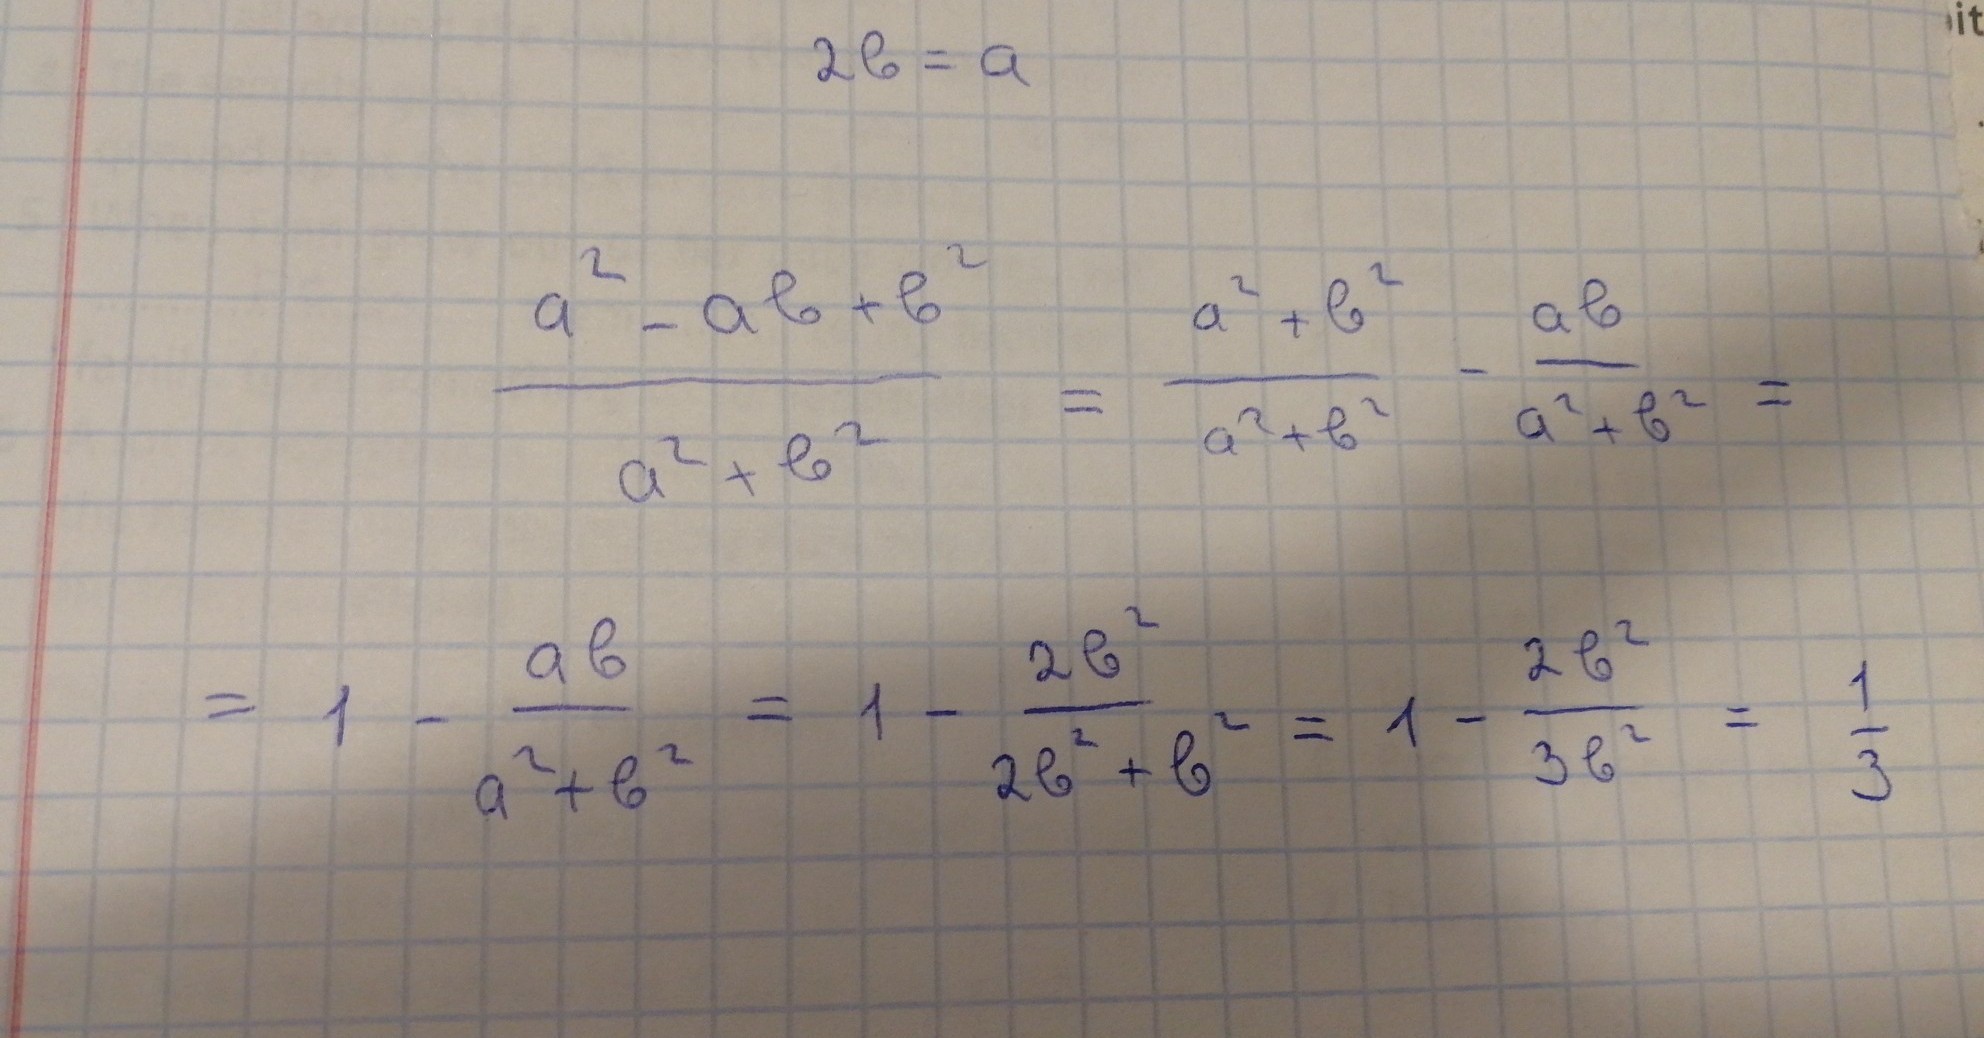 2b = a
(a² - ab + b²) / (a² + b²) = (a² + b²) / (a² + b²) - ab / (a² + b²) =
= 1 - ab / (a² + b²) = 1 - 2b² / (2b² + b²) = 1 - 2b² / 3b² = 1/3